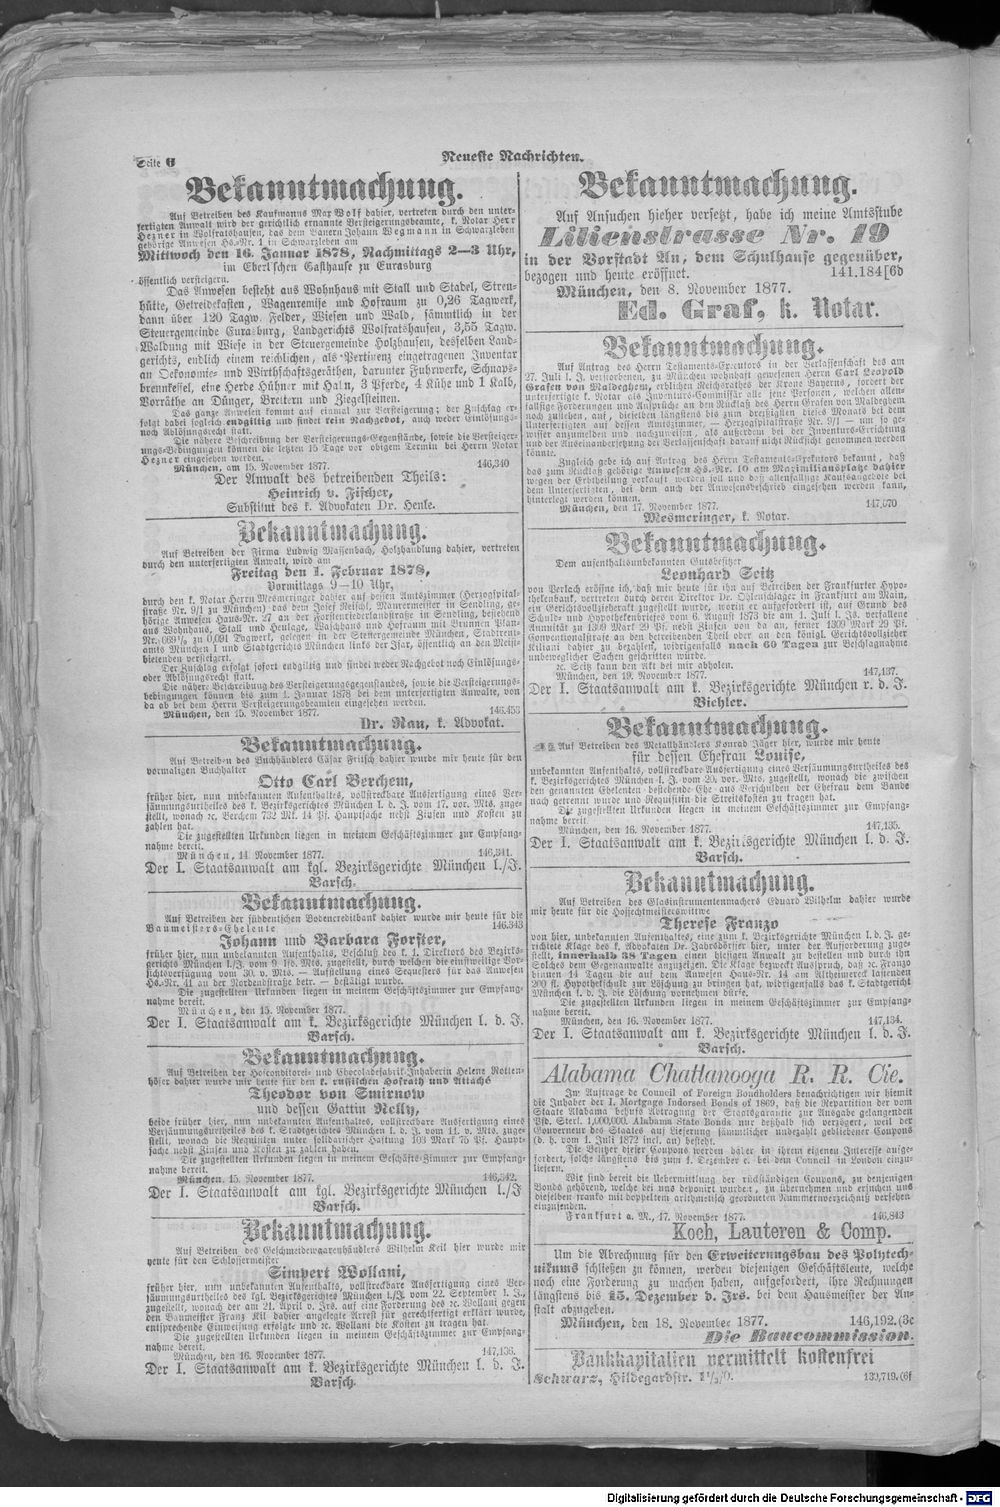 Seite 6
Neueste Nachrichten.
Bekanntmachung.
Auf Betreiben des Kaufmanns Max Wolf dahier, vertreten durch den unter-
fertigten Anwalt wird der gerichtlich ernannte Versteigerungsbeamte, k. Notar Herr
Hezner in Wolfratshausen, das dem Bauern Johann Wegmann in Schwarzleben
gehörige Anwesen Hs.-Nr. 1 in Schwarzleben am
Mittwoch den 16. Januar 1878, Nachmittags 2—3 Uhr,
im Eberl'schen Gasthause zu Eurasburg
öffentlich versteigern.
Das Anwesen besteht aus Wohnhaus mit Stall und Stadel, Stren-
hütte, Getreidekasten, Wagenremise und Hofraum zu 0,26 Tagwerk,
dann über 120 Tagw. Felder, Wiesen und Wald, sämmtlich in der
Steuergemeinde Eurasburg, Landgerichts Wolfratshausen, 3,55 Tagw.
Waldung mit Wiese in der Steuergemeinde Holzhausen, desselben Land-
gerichts, endlich einem reichlichen, als Pertinenz eingetragenen Inventar
an Oekonomie- und Wirthschaftsgeräthen, darunter Fuhrwerke, Schnaps-
brennkessel, eine Herde Hühner mit Hahn, 3 Pferde, 4 Kühe und 1 Kalb,
Vorräthe an Dünger, Brettern und Ziegelsteinen.
Das ganze Anwesen kommt auf einmal zur Versteigerung; der Zuschlag er-
folgt dabei sogleich endgiltig und findet kein Nachgebot, auch weder Einlösungs-
noch Ablösungsrecht statt.
Die nähere Beschreibung der Versteigerungs-Gegenstände, sowie die Versteiger-
ungs-Bedingungen können die letzten 15 Tage vor obigem Termin bei Herrn Notar
Hezner eingesehen werden.
München, am 15. November 1877. 146,340
Der Anwalt des betreibenden Theils:
Heinrich v. Fischer,
Substitut des k. Advokaten Dr. Henle.
Bekanntmachung.
Auf Betreiben der Firma Ludwig Massenbach, Holzhandlung dahier, vertreten
durch den unterfertigten Anwalt, wird am
Freitag den 1. Februar 1878,
Vormittags 9—10 Uhr,
durch den k. Notar Herrn Mesmeringer dahier auf dessen Amtszimmer (Herzogspital-
straße Nr. 9/1 zu München) das dem Josef Reischl, Maurermeister in Sendling, ge-
hörige Anwesen Haus-Nr. 27 an der Forstenriederlandstraße in Sendling, bestehend
aus Wohnhaus, Stall und Heulage, Waschhaus und Hofraum mit Brunnen Plan-
Nr. 669½ zu 0,091 Tagwerk, gelegen in der Steuergemeinde München, Stadtrent-
amts München I und Stadtgerichts München links der Isar, öffentlich an den Meist-
bietenden versteigert.
Der Zuschlag erfolgt sofort endgiltig und findet weder Nachgebot noch Einlösungs-
oder Ablösungsrecht statt.
Die nähere Beschreibung des Versteigerungsgegenstandes, sowie die Versteigerungs-
bedingungen können bis zum 1. Januar 1878 bei dem unterfertigten Anwalte, von
da ab bei dem Herrn Versteigerungsbeamten eingesehen werden.
München, den 15. November 1877. 146.453
Dr. Rau, k. Advokat.
Bekanntmachung.
Auf Betreiben des Buchhändlers Cäsar Fritsch dahier wurde mir heute für den
vormaligen Buchhalter
Otto Carl Berchem,
früher hier, nun unbekannten Aufenthaltes, vollstreckbare Ausfertigung eines Ver-
säumungsurtheiles des k. Bezirksgerichtes München l. d. J. vom 17. vor. Mts. zuge-
stellt, wonach ꝛc. Berchem 732 Mk. 14 Pf. Hauptsache nebst Zinsen und Kosten zu
zahlen hat.
Die zugestellten Urkunden liegen in meinem Geschäftszimmer zur Empfang-
nahme bereit.
München, 14. November 1877. 146,341.
Der I. Staatsanwalt am kgl. Bezirksgerichte München l./J.
Barsch.
Bekanntmachung.
Auf Betreiben der süddeutschen Bodencreditbank dahier wurde mir heute für die
Baumeisters-Eheleute 146.343
Johann und Barbara Forster,
früher hier, nun unbekannten Aufenthalts, Beschluß des k. I. Direktors des Bezirks-
gerichts München l./J. vom 9. lfd. Mts. zugestellt, durch welchen die einstweilige Vor-
sichtsverfügung vom 30. v. Mts. — Aufstellung eines Sequesters für das Anwesen
Hs.-Nr. 41 an der Nordendstraße betr. — bestätigt wurde.
Die zugestellten Urkunden liegen in meinem Geschäftszimmer zur Empfang-
nahme bereit.
München, den 15. November 1877.
Der I. Staatsanwalt am k. Bezirksgerichte München l. d. J.
Barsch.
Bekanntmachung.
Auf Betreiben der Hofconditorei- und Chocoladefabrik-Inhaberin Helene Rotten-
höfer dahier wurde mir heute für den k. russischen Hofrath und Attachs
Theodor von Smirnow
und dessen Gattin Nelly,
beide früher hier, nun unbekannten Aufenthaltes, vollstreckbare Ausfertigung eines
Versäumungsurtheiles des k. Stadtgerichts München l. d. J. vom 14. v. Mts. zuge-
stellt, wonach die Requisiten unter solidarischer Haftung 103 Mark 75 Pf. Haupt-
sache nebst Zinsen und Kosten zu zahlen haben.
Die zugestellten Urkunden liegen in meinem Geschäfts-Zimmer zur Empfang-
nahme bereit.
München, 15. November 1877. 146,342.
Der I. Staatsanwalt am kgl. Bezirksgerichte München l./J
Barsch.
Bekanntmachung.
Auf Betreiben des Geschmeidewaarenhändlers Wilhelm Keil hier wurde mir
heute für den Schlossermeister
Simpert Wollani,
früher hier, nun unbekannten Aufenthaltes, vollstreckbare Ausfertigung eines Ver-
säumungsurtheiles des kgl. Bezirksgerichtes München l./J. vom 22. September l. J.,
zugestellt, wonach der am 21. April v. Jrs. auf eine Forderung des ꝛc. Wollani gegen
den Baumeister Franz Kil dahier angelegte Arrest für gerechtfertigt erklärt wurde,
entsprechende Einweisung erfolgte und ꝛc. Wollani die Kosten zu tragen hat.
Die zugestellten Urkunden liegen in meinem Geschäftszimmer zur Empfang-
nahme bereit.
München, den 16. November 1877. 147,136.
Der I. Staatsanwalt am k. Bezirksgerichte München l. d. J.
Barsch.
Bekanntmachung.
Auf Ansuchen hieher versetzt, habe ich meine Amtsstube
Lilienstrasse Nr. 19
in der Vorstadt Au, dem Schulhause gegenüber,
bezogen und heute eröffnet. 141.184[6d
München, den 8. November 1877.
Ed. Graf, k. Notar.
Bekanntmachung.
Auf Antrag des Herrn Testaments-Executors in der Verlassenschaft des am
27. Juli l. J. verstorbenen, zu München wohnhaft gewesenen Herrn Carl Leopold
Grafen von Maldeghem, erblichen Reichsrathes der Krone Bayerns, fordert der
unterfertigte k. Notar als Inventurs-Commissär alle jene Personen, welchen allen-
fallsige Forderungen und Ansprüche an den Rücklaß des Herrn Grafen von Maldeghem
noch zustehen, auf, dieselben längstens bis zum dreißigsten dieses Monats bei dem
Unterfertigten auf dessen Amtszimmer, — Herzogspitalstraße Nr. 9/1 — um so ge-
wisser anzumelden und nachzuweisen, als außerdem bei der Inventurs-Errichtung
und der Auseinandersetzung der Verlassenschaft darauf nicht Rücksicht genommen werden
könnte.
Zugleich gebe ich auf Antrag des Herrn Testaments-Exekutors bekannt, daß
das zum Rücklaß gehörige Anwesen Hs.-Nr. 10 am Maximiliansplatze dahier
wegen der Erbtheilung verkauft werden soll und daß allenfallsige Kaufsangebote bei
dem Unterfertigten, bei dem auch der Anwesensbeschrieb eingesehen werden kann,
hinterlegt werden können.
München, den 17. November 1877. 147,070
Mesmeringer, k. Notar.
Bekanntmachung.
Dem aufenthaltsunbekannten Gutsbesitzer
Leonhard Seitz
von Berlach eröffne ich, daß mir heute für ihn auf Betreiben der Frankfurter Hypo-
thekenbank, vertreten durch deren Direktor Dr. Ohlenschlager in Frankfurt am Main,
ein Gerichtsvollzieherakt zugestellt wurde, worin er aufgefordert ist, auf Grund des
Schuld- und Hypothekenbriefes vom 6. August 1873 die am 1. Juli l. Js. verfallene
Annuität zu 1309 Mark 29 Pf. nebst Zinsen von da an, ferner 1309 Mark 29 Pf.
Conventionalstrafe an den betreibenden Theil oder an den königl. Gerichtsvollzieher
Kiliani dahier zu bezahlen, widrigenfalls nach 60 Tagen zur Beschlagnahme
unbeweglicher Sachen geschritten würde.
ꝛc. Seitz kann den Akt bei mir abholen.
München, den 19. November 1877. 147,137.
Der I. Staatsanwalt am k. Bezirksgerichte München r. d. J.
Biehler.
Bekanntmachung.
Auf Betreiben des Metallhändlers Konrad Jäger hier, wurde mir heute
für dessen Ehefrau Louise,
unbekannten Aufenthalts, vollstreckbare Ausfertigung eines Versäumungsurtheiles des
k. Bezirksgerichtes München l. J. vom 20. vor. Mts. zugestellt, wonach die zwischen
den genannten Eheleuten bestehende Ehe aus Verschulden der Ehefrau dem Bande
nach getrennt wurde und Requisitin die Streitskosten zu tragen hat.
Die zugestellten Urkunden liegen in meinem Geschäftszimmer zur Empfang-
nahme bereit.
München, den 16. November 1877. 147,135.
Der I. Staatsanwalt am k. Bezirksgerichte München l. d. J.
Barsch.
Bekanntmachung.
Auf Betreiben des Glasinstrumentenmachers Eduard Wilhelm dahier wurde
mir heute für die Hoffechtmeisterswittwe
Therese Franzo
von hier, unbekannten Aufenthaltes, eine zum k. Bezirksgerichte München l. d. J. ge-
richtete Klage des k. Advokaten Dr. Jahrsdörfer hier, unter der Aufforderung zuge-
stellt, innerhalb 38 Tagen einen hiesigen Anwalt zu bestellen und durch ihn
Solches dem Gegenanwalte anzuzeigen. Die Klage bezweckt Ausspruch, daß ꝛc. Franzo
binnen 14 Tagen die auf dem Anwesen Haus-Nr. 14 am Altheimereck lastenden
200 fl. Hypothekschuld zur Löschung zu bringen hat, widrigenfalls das k. Stadtgericht
München l. d. J. die Löschung vornehmen dürfe.
Die zugestellten Urkunden liegen in meinem Geschäftszimmer zur Empfang-
nahme bereit.
München, den 16. November 1877. 147,134.
Der I. Staatsanwalt am k. Bezirksgerichte München l. d. J.
Barsch.
Alabama Chattanooga R. R. Cie.
Im Auftrage de Council of Foreign Bondholders benachrichtigen wir hiemit
die Inhaber der I. Mortgage Indorsed Bonds of 1869, daß die Repartition der vom
Staate Alabama behufs Abtragung der Staatsgarantie zur Ausgabe gelangenden
Pfd. Sterl. 1,000,000. Alabama State Bonds nur deßhalb sich verzögert, weil der
Gouverneur des Staates auf Lieferung sämmtlicher unbezahlt gebliebener Coupons
(d. h. vom 1. Juli 1872 incl. an) besteht.
Die Besitzer dieser Coupons werden daher in ihrem eigenen Interesse aufge-
fordert, solche längstens bis zum 4. Dezember c. bei dem Council in London einzu-
liefern.
Wir sind bereit die Uebermittlung der rückständigen Coupons, zu denjenigen
Bonds gehörend, welche bei uns deponirt wurden, zu übernehmen und ersuchen uns
dieselben franko mit doppeltem arithmetisch geordneten Nummernverzeichniß versehen
einzusenden.
Frankfurt a. M., 17. November 1877. 146,843
Koch, Lauteren & Comp.
Um die Abrechnung für den Erweiterungsbau des Polytech-
nikums schließen zu können, werden diejenigen Geschäftsleute, welche
noch eine Forderung zu machen haben, aufgefordert, ihre Rechnungen
längstens bis 15. Dezember d. Irs. bei dem Hausmeister der An-
stalt abzugeben.
München, den 18. November 1877. 146,192.(3c
Die Baucommission.
Bankkapitalien vermittelt kostenfrei
Schwarz, Hildegardstr. 1½/0. 139,719.(6f
Digitalisierung gefördert durch die Deutsche Forschungsgemeinschaft - DFG